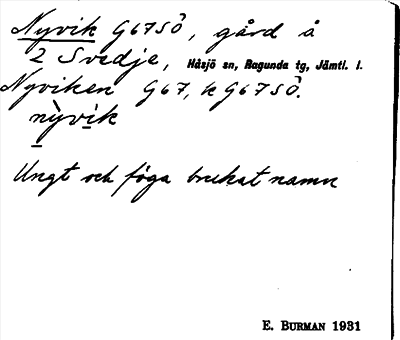 Nyvik G67SÖ, gård å
2 Svedje, Håsjö sn, Ragunda tg, Jämtl. l.
Nyviken G67, k G67SÖ.
nỳvik
Ungt och föga brukat namn
E. BURMAN 1931